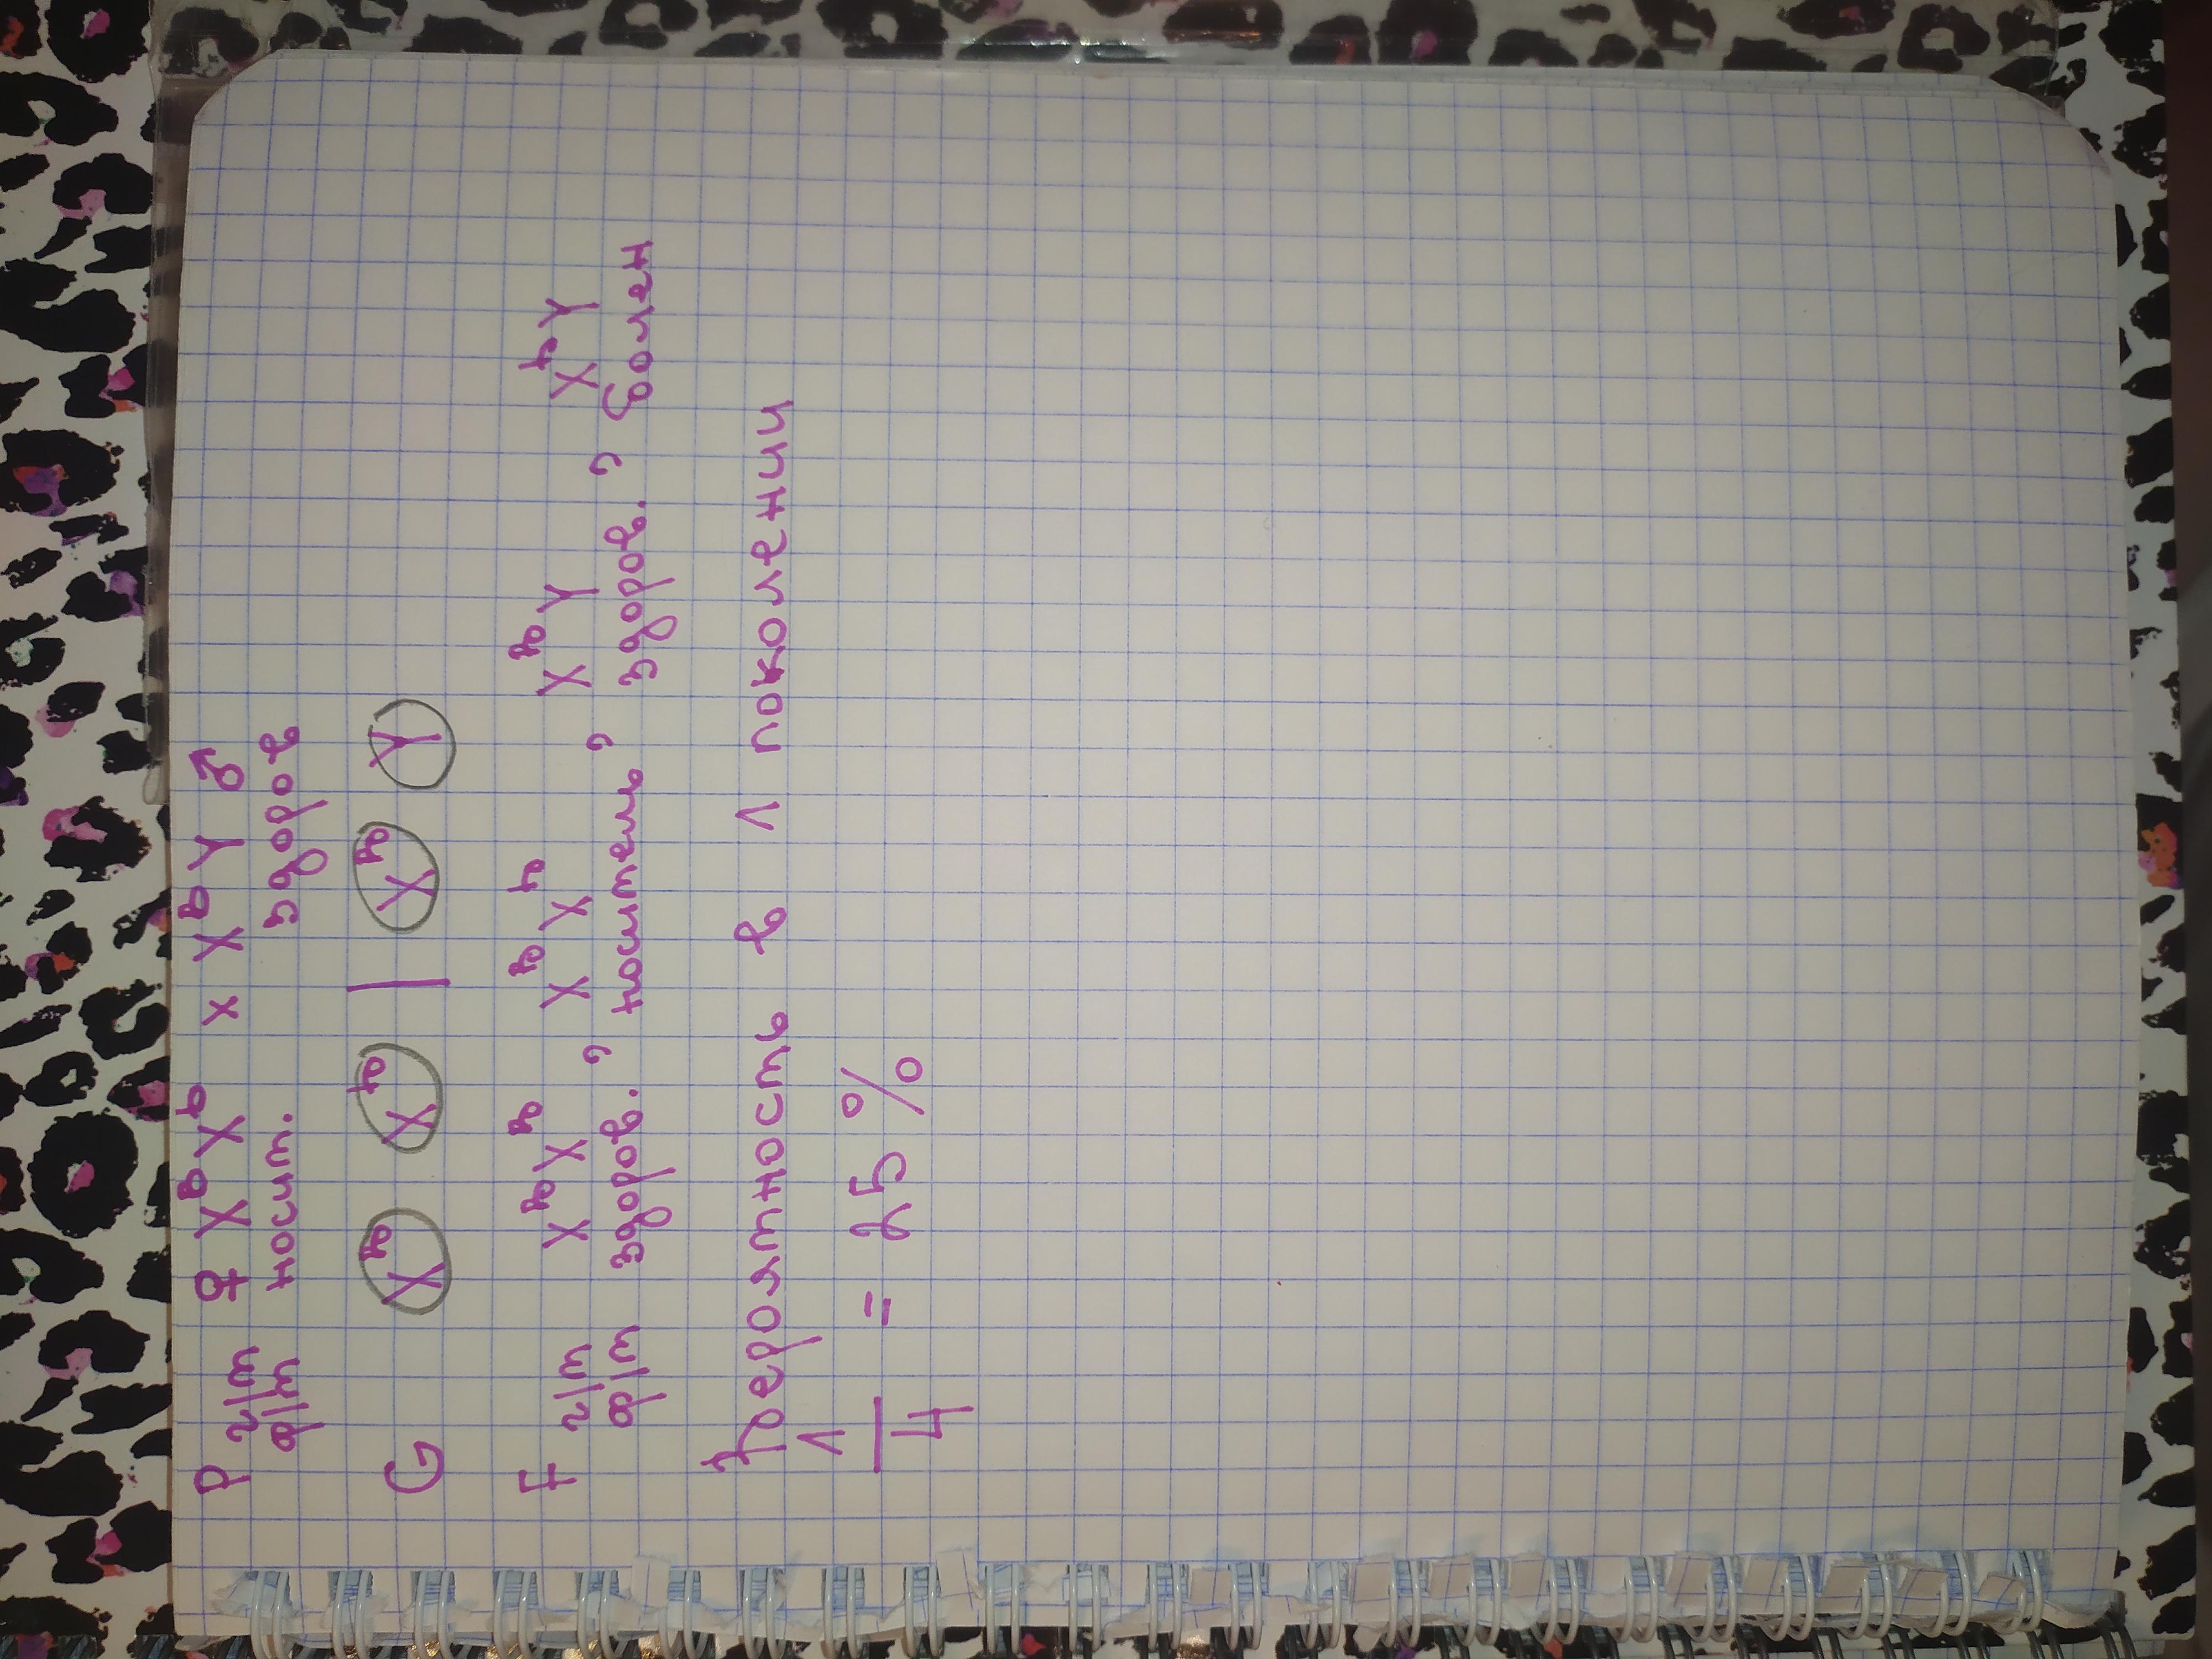 P ♀ XᴮXᵇ x XᴮY ♂
г/т
ф/т носит. здоров
G Xᴮ Xᵇ | Xᴮ Y
F г/т XᴮXᴮ , XᴮXᵇ , XᴮY , XᵇY
ф/т здоров. носитель здоров. болен
Вероятность в 1 поколении
1/4 = 25 %